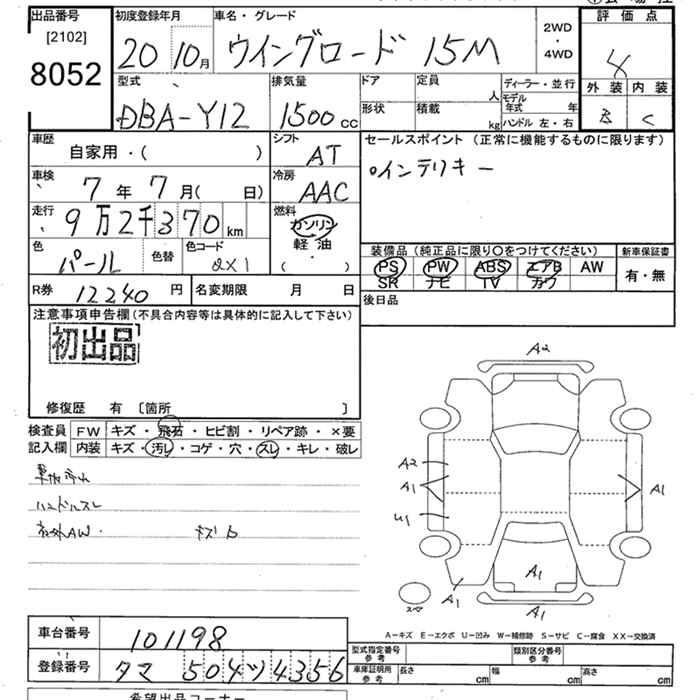 出品番号
[2102]
8052
初度登録年月
20 10月
車名・グレード
ウイングロード 15M
2WD
・
4WD
評価点
4
外装 内装
B C
型式
DBA-Y12
排気量
1500 cc
ドア
定員
人
形状
積載
kg
ディーラー・並行
モデル年式 年
ハンドル 左・右
車歴
自家用・( )
シフト
AT
セールスポイント (正常に機能するものに限ります)
インテリキー
車検
7年 7月( 日)
冷房
AAC
走行
9万2千370km
燃料
ガソリン
軽油
( ・ )
色
パール
色替
色コード
QX1
装備品 (純正品に限り○をつけてください)
PS PW ABS エアB AW
SR ナビ TV カワ
新車保証書
有・無
R券 12240 円
名変期限 月 日
後日品
注意事項申告欄(不具合内容等は具体的に記入して下さい)
初出品
修復歴 有 〔箇所 〕
検査員 FW キズ・飛石・ヒビ割・リペア跡・×要
記入欄 内装 キズ・汚レ・コゲ・穴・スレ・キレ・破レ
ハンドルスレ
A2
A2
A1
U1
A1
A1
A1
A1
A-キズ E-エクボ U-凹み W-補修跡 S-サビ C-腐食 XX-交換済
車台番号 101198
登録番号 タマ 504ツ4356
型式指定番号
参考
類別区分番号
参考
車庫証明用
参考
長さ cm
幅 cm
高さ cm
希望出品コーナー